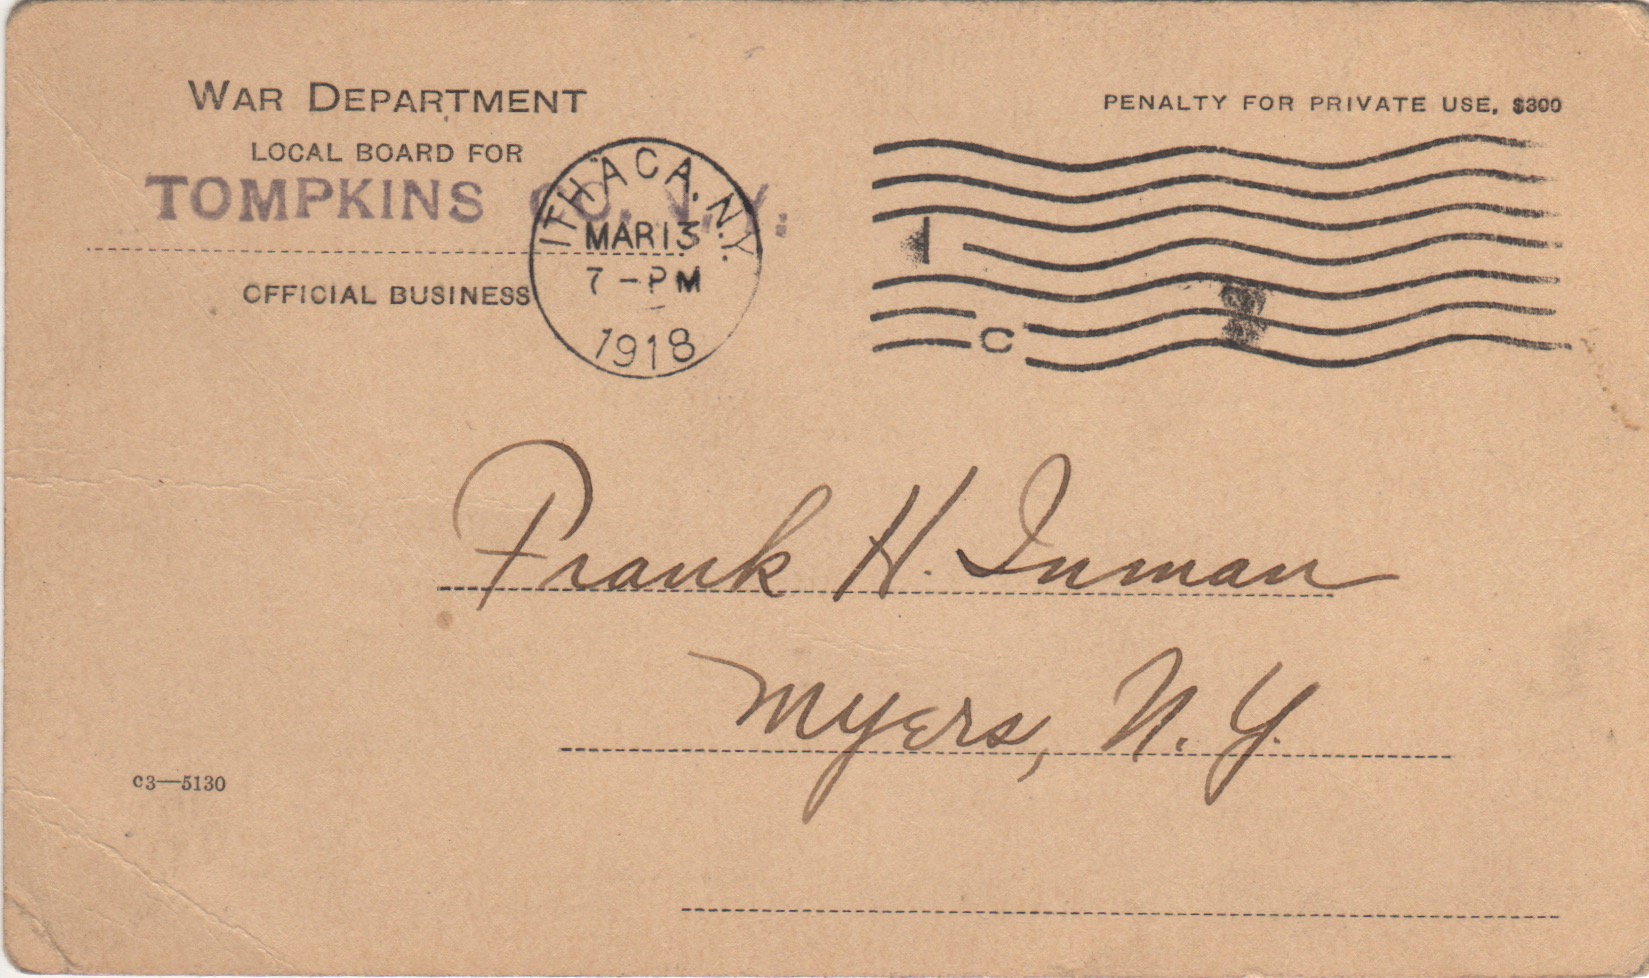 WAR DEPARTMENT
LOCAL BOARD FOR
TOMPKINS CO. N.Y.
OFFICIAL BUSINESS
PENALTY FOR PRIVATE USE, $300
ITHACA. N.Y.
MAR 13
7 - PM
1918
1
C
Frank H. Inman
Myers, N.Y.
C3—5130